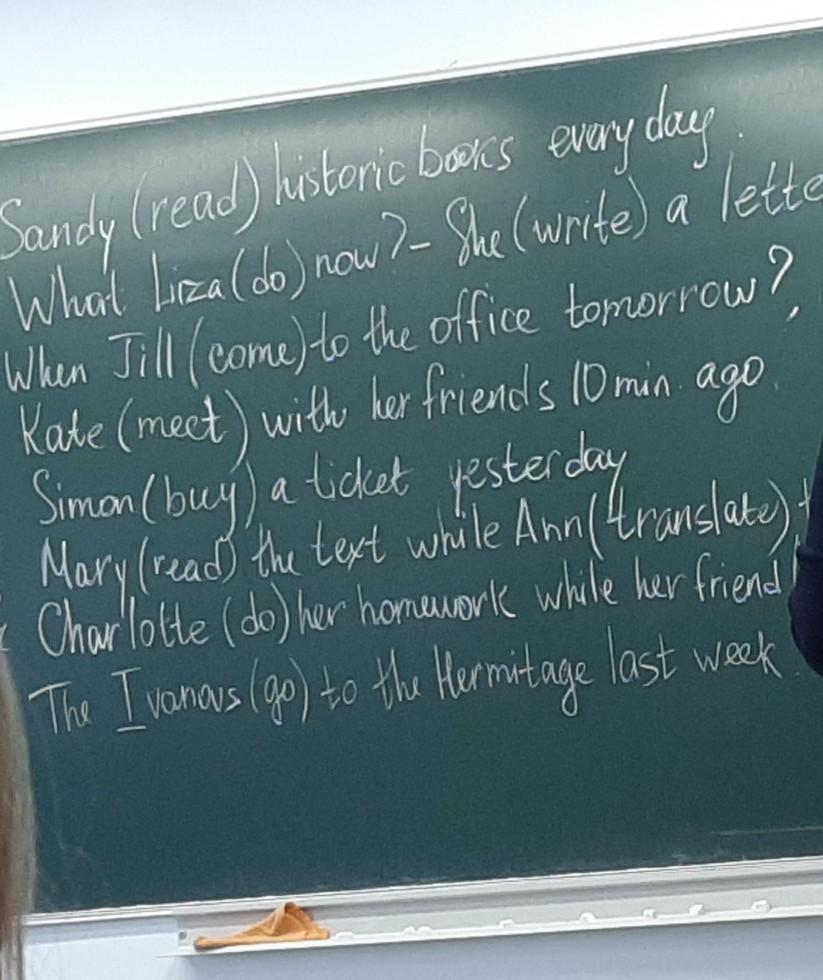 Sandy (read) historic books every day.
What Liza (do) now? - She (write) a lette
When Jill (come) to the office tomorrow?,
Kate (meet) with her friends 10 min. ago.
Simon (buy) a ticket yesterday
Mary (read) the text while Ann (translate)
Charlotte (do) her homework while her friend
The Ivanovs (go) to the Hermitage last week.